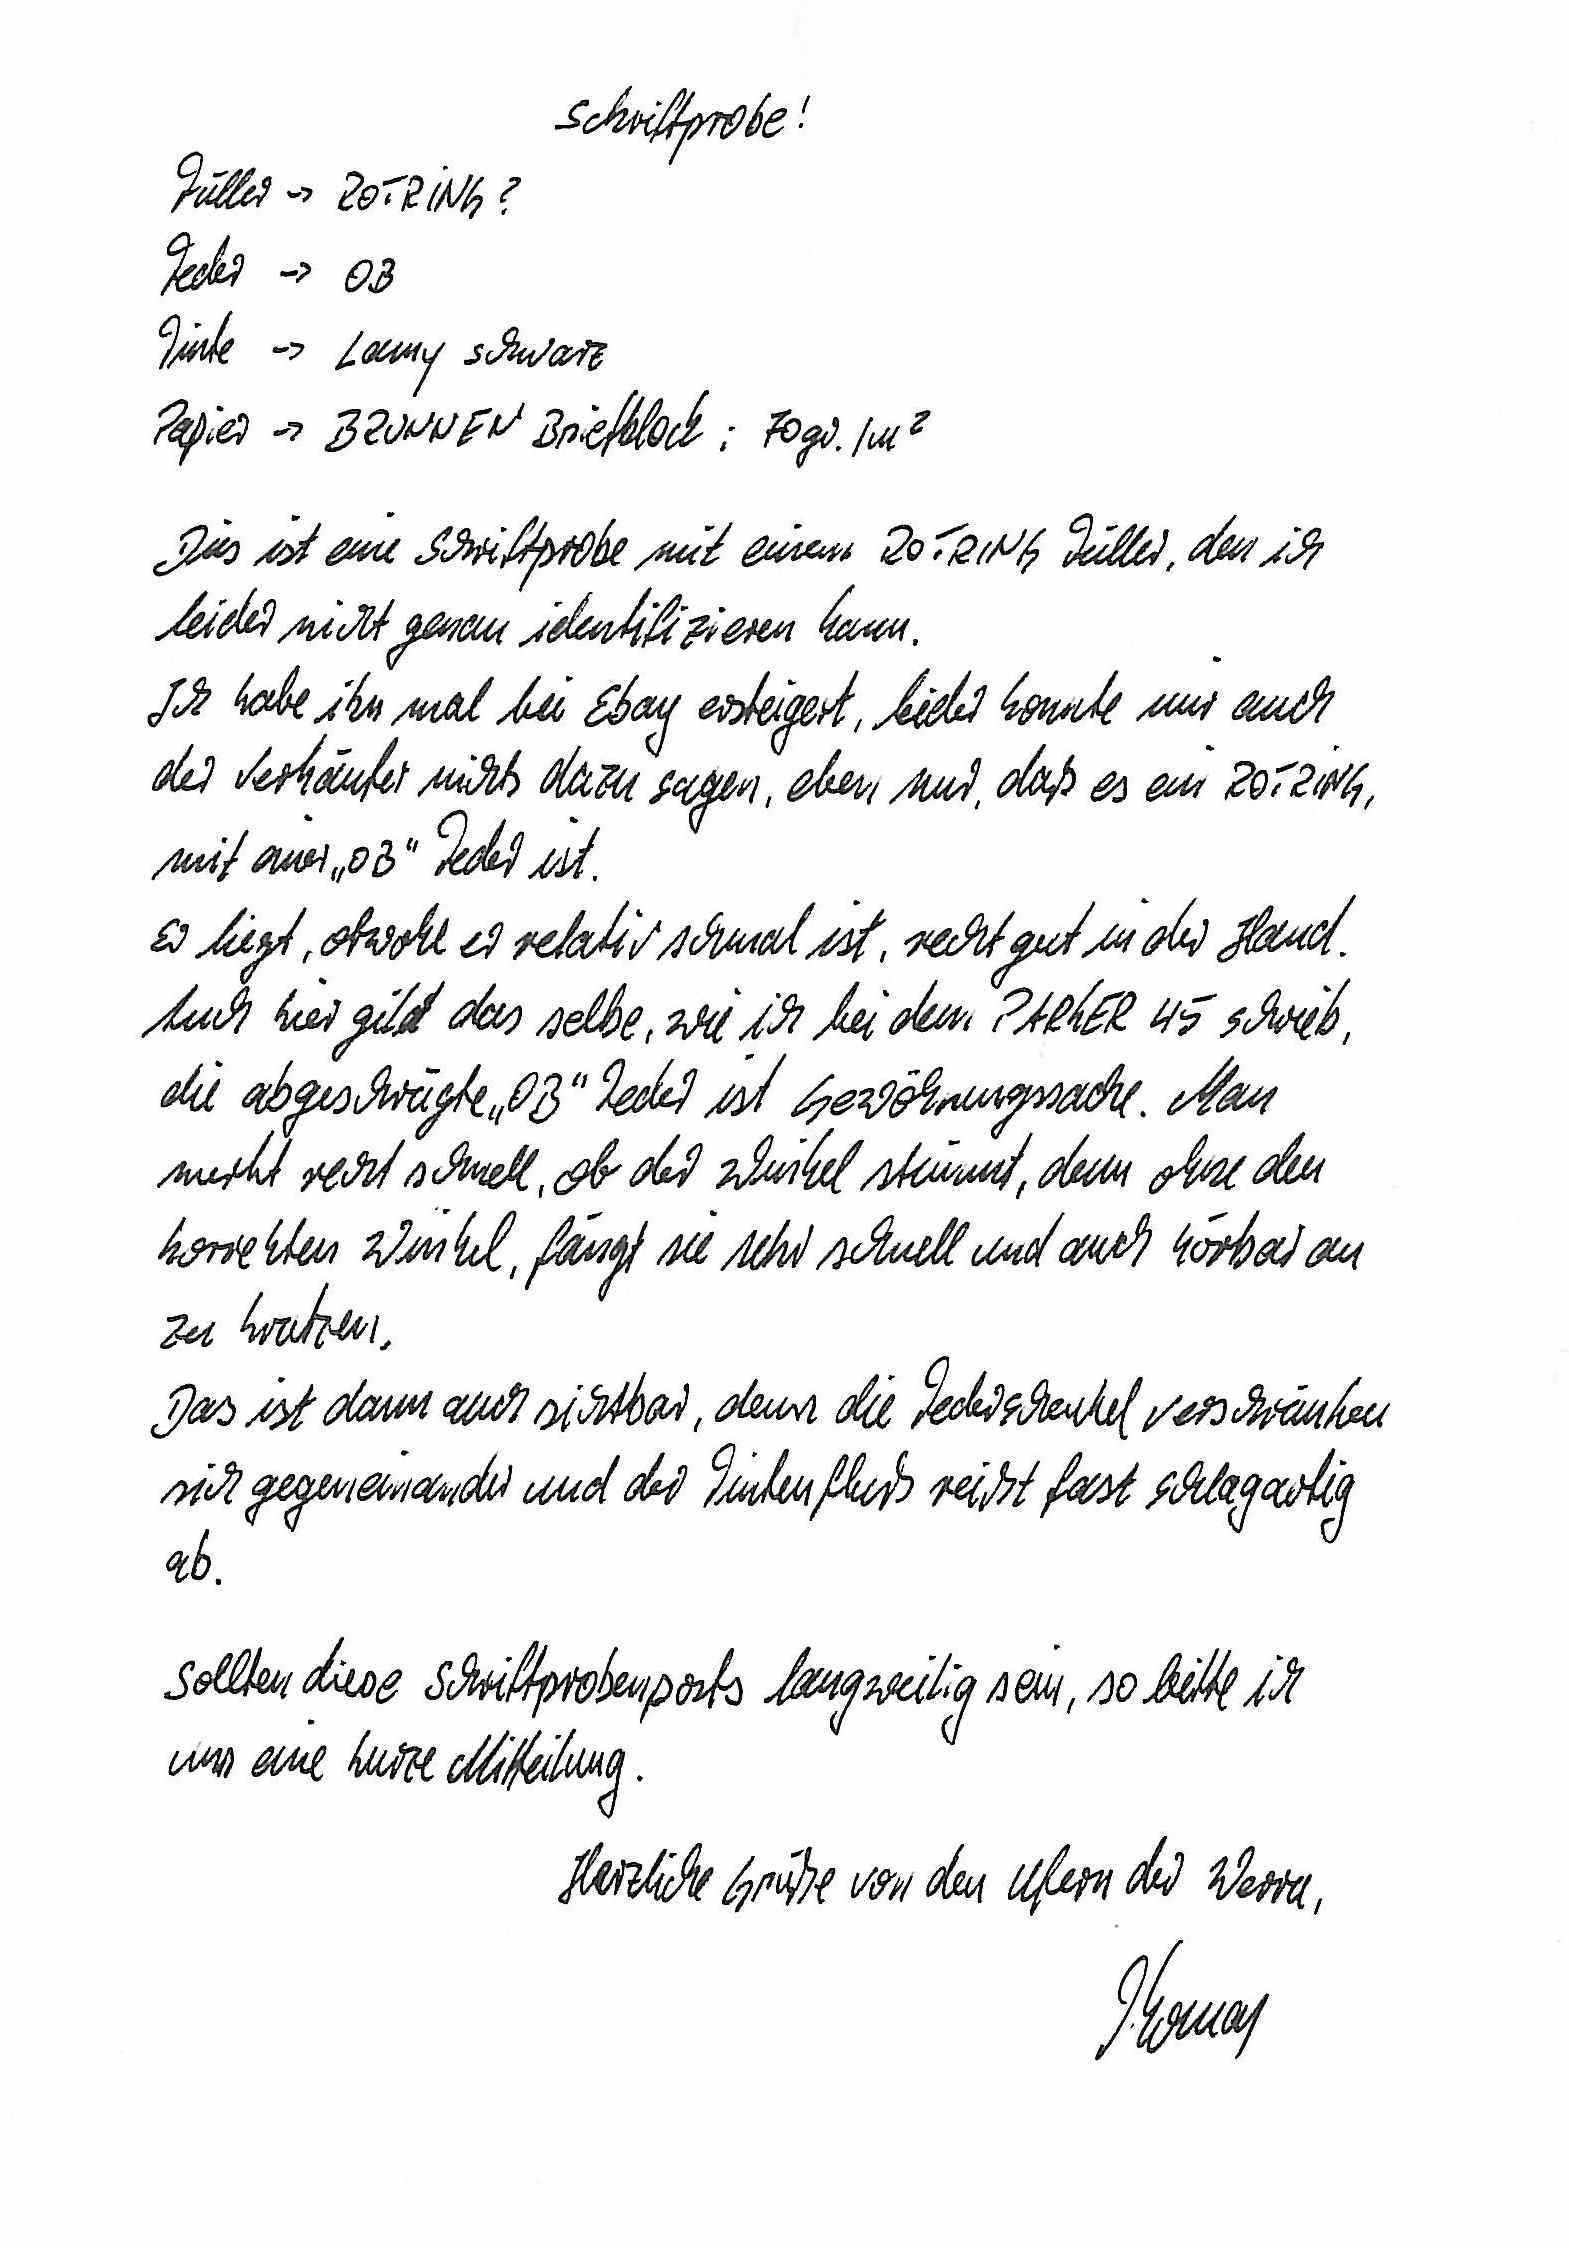 Schriftprobe!
Füller → ROTRING?
Feder → OB
Tinte → Lamy schwarz
Papier → BRUNNEN Briefblock : 70gr./m²
Dies ist eine Schriftprobe mit einem ROTRING Füller, den ich
leider nicht genau identifizieren kann.
Ich habe ihn mal bei Ebay ersteigert, leider konnte mir auch
der Verkäufer nichts dazu sagen, eben nur, daß es ein ROTRING,
mit einer „OB" Feder ist.
Er liegt, obwohl er relativ schmal ist, recht gut in der Hand.
Auch hier gilt das selbe, wie ich bei dem PARKER 45 schrieb,
die abgeschrägte „OB" Feder ist Gewöhnungssache. Man
merkt recht schnell, ob der Winkel stimmt, denn ohne den
korrekten Winkel, fängt sie sehr schnell und auch hörbar an
zu kratzen.
Das ist dann auch sichtbar, denn die Federschenkel verschränken
sich gegeneinander und der Tintenfluß reißt fast schlagartig
ab.
Sollten diese Schriftprobenposts langweilig sein, so bitte ich
um eine kurze Mitteilung.
Herzliche Grüße von den Ufern der Werra,
Thomas